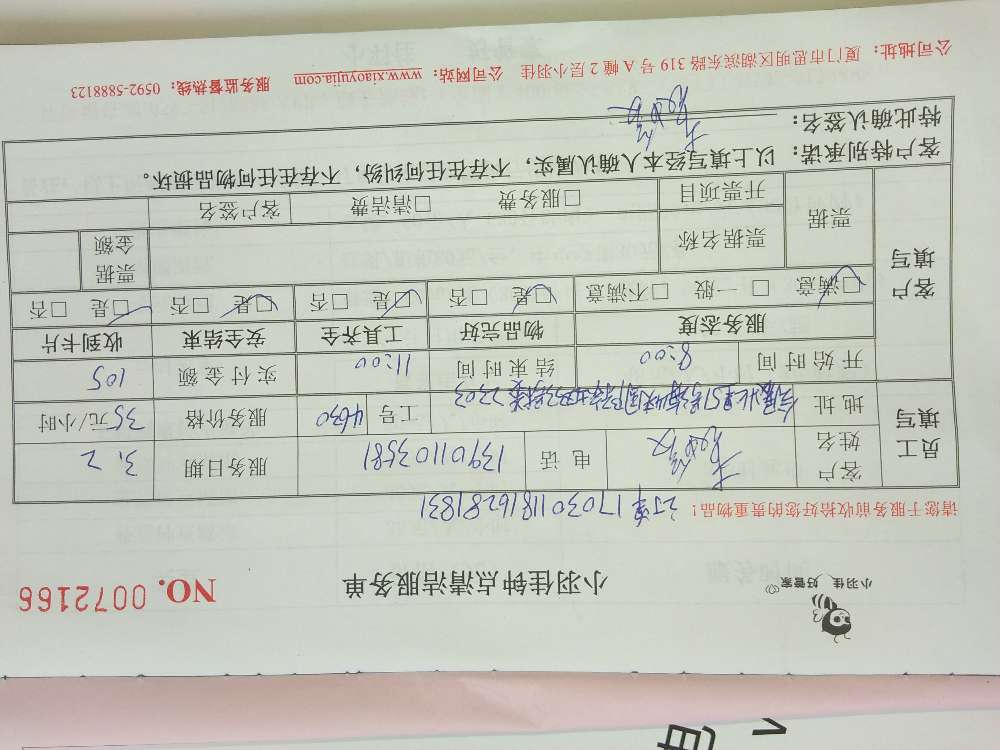 小羽佳 好管家
小羽佳钟点清洁服务单
NO. 0072166
请您于服务前收拾好您的贵重物品!
订单1703011816281831
员工填写
客户姓名
电话 13901103581
服务日期 3.2
地址
工号 4630
服务价格 35元/小时
开始时间 8:00
结束时间 11:00
实付金额 105
客户填写
服务态度 物品完好 工具齐全 安全结束 收到卡片
☑满意 □一般 □不满意 ☑是 □否 ☑是 □否 ☑是 □否 ☑是 □否
票据 票据名称 票据金额
开票项目 □服务费 □清洁费 客户签名
客户特别承诺:以上填写经本人确认属实,不存在任何纠纷,不存在任何物品损坏。
特此确认签名:
公司地址:厦门市思明区湖滨东路 319 号 A 幢 2 层小羽佳 公司网站:www.xiaoyujia.com 服务监督热线:0592-5888123